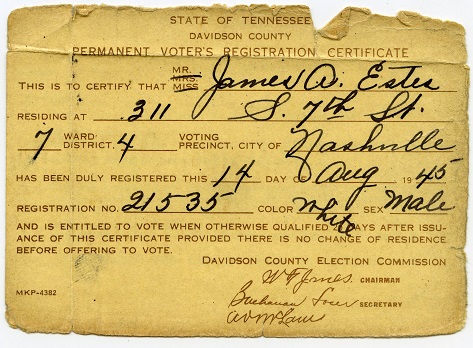 STATE OF TENNESSEE
DAVIDSON COUNTY
PERMANENT VOTER'S REGISTRATION CERTIFICATE
THIS IS TO CERTIFY THAT MR. MRS. MISS James A. Estes
RESIDING AT 311 S. 7th St.
7 WARD DISTRICT. 4 VOTING PRECINCT, CITY OF Nashville
HAS BEEN DULY REGISTERED THIS 14 DAY OF Aug 1945
REGISTRATION NO. 21535 COLOR White SEX Male
AND IS ENTITLED TO VOTE WHEN OTHERWISE QUALIFIED DAYS AFTER ISSU-
ANCE OF THIS CERTIFICATE PROVIDED THERE IS NO CHANGE OF RESIDENCE
BEFORE OFFERING TO VOTE.
DAVIDSON COUNTY ELECTION COMMISSION
CHAIRMAN
MKP-4382 Buchanan SECRETARY